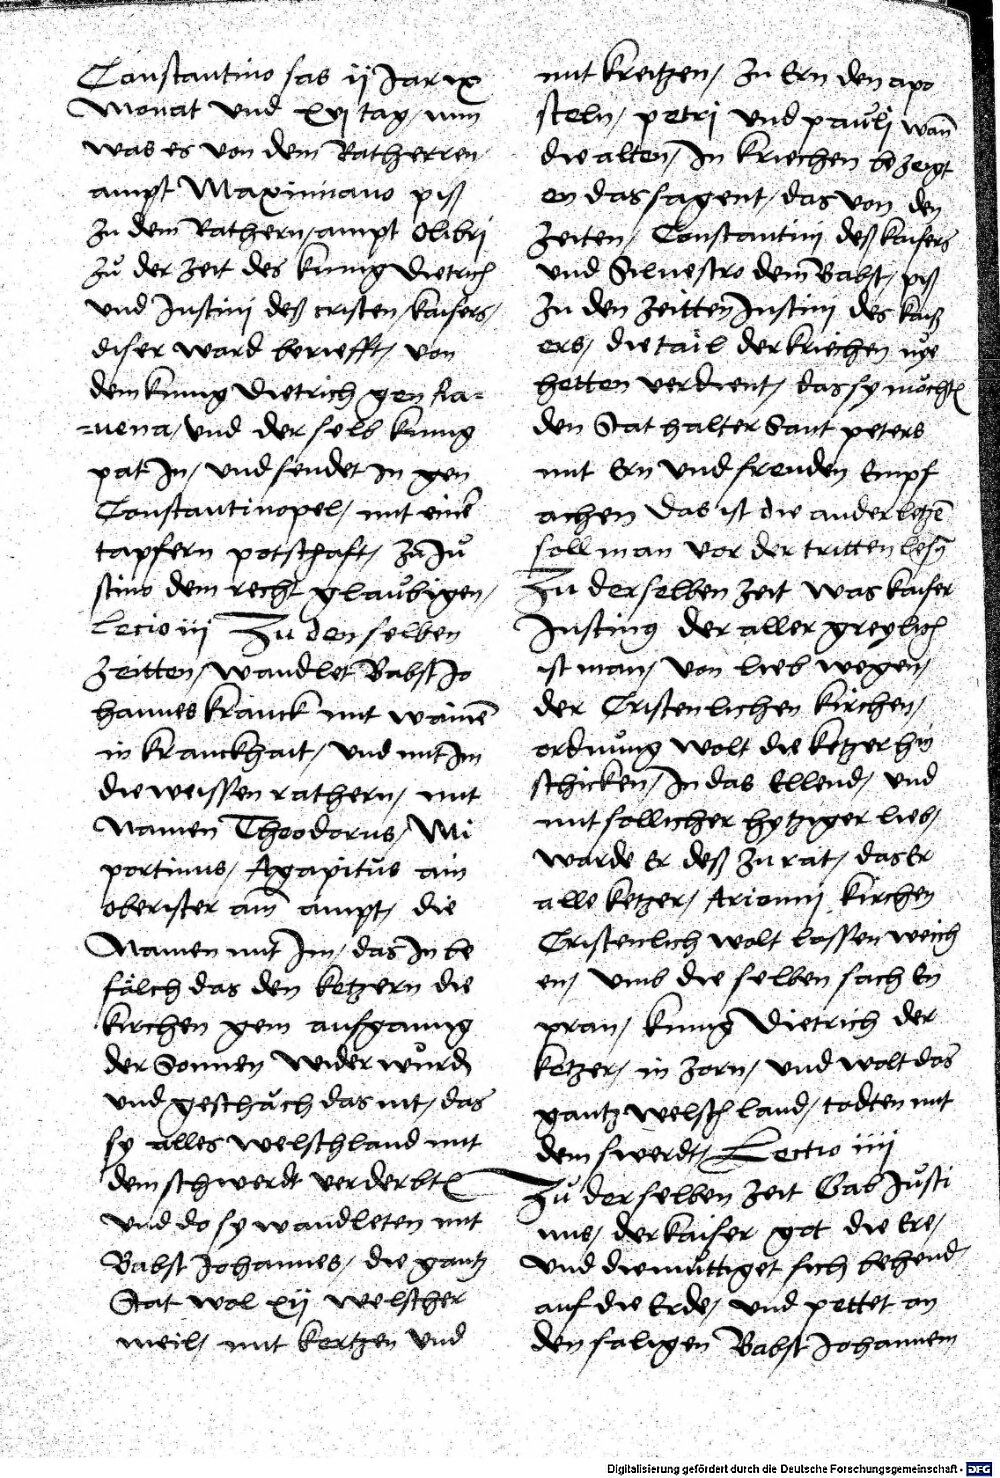 Constantino sas ij Jar ix
Monat und xvj tag, nun
was es von dem Ratherren,
ampt Maximiano piß
zu dem Rathern, ampt Olibrj
zů der zeit des kunig Dietrich
und Justinj deß cristen, kaisers,
diser ward berůefft, von
dem kunig Dietrich gen Ra-
-uena, und der selb kunig
pat In, und sendet In gen
Constantinopel, mit eine
tapfern potschaft, zu Ju
stino dem recht glaubigen,
Lecio iij Zu den selben
Zeitten, wandlet Babst Jo
hannes kranck mit wainē
in kranckhait, und mit Im
die weissen rathern, mit
Namen Theodorus, Mi
portinus, Agapitus ain
oberister am ampt, die
Namen mit Im, das In be
fälch das den ketzern die
kirchen gem aufganng
der Sonnen wider wurd
und geschäch das nit, das
sy alles welschland mit
dem schwerdt verderbte
und do sy wandleten mit
Babst Johannes, die gantz
Stat wol xij welscher
meil, mit kertzen und
mit kreitzen, zu Ern den apo
steln, petrj und paulj wan̄
die alten, In kriechen bezeigt
en das sagent, das von den
zeiten, Constantinj deß kaisers
und Siluestro dem Babst, piß
zu den zeitten Justinj des kaiß
ers, die tail der kriechen nye
hetten verdient, das sy möchtē
den Stathalter Sant peters
mit Ern und freuden Empf
achen das ist die ander letzē
soll man vor der tritten lesn̄
Zu derselben zeit was kaiser
Justinus der aller greylich
ist man, von lieb wegen,
der Cristenlichen kirchen,
ordnung wolt die ketzer hin
schicken, In das Ellend, und
mit sollicher hytziger lieb,
warde Er deß zu rat, das Er
alle ketzer, Arianij kirchen
Cristenlich wolt lossen weich
en, umb die selben sach En
pran, kunig Dietrich der
ketzer, in zorn, und wolt das
gantz welsch land, todten mit
dem swerdt, Lectio iiij
Zů der selben zeit Gab Justi
nus, der kaiser got die Ere,
und diemuttiget sich behend
auf die Erde, und pettet an
den saligen Babst Johannem
Digitalisierung gefördert durch die Deutsche Forschungsgemeinschaft - DFG